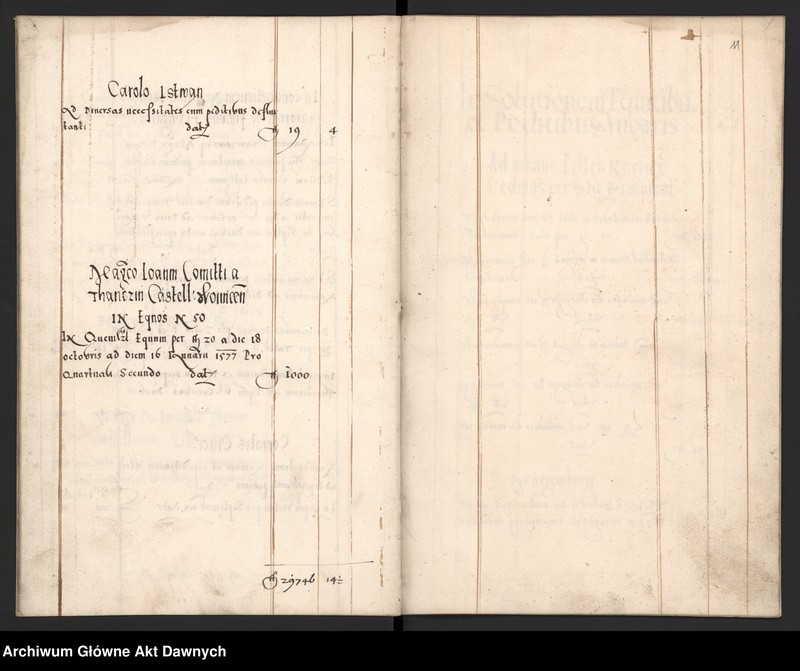 Carolo Istwan
Ad Diversas necessitates cum peditibus deser
tanti dat fl 19 4
Magco Ioanni Comitti a
Thanczin Castell: Woinicen
IN Eqnos N 50
IN Quemlibet Equum per fl 20 a die 18
octobris ad diem 16 Ianuarii 1577 Pro
Quartuali Secundo dat fl 1000
fl 29746 14½
11
Archiwum Główne Akt Dawnych